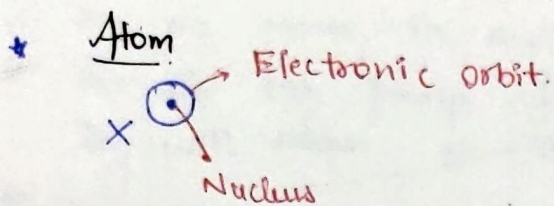 * Atom
Electronic orbit.
X
Nucleus